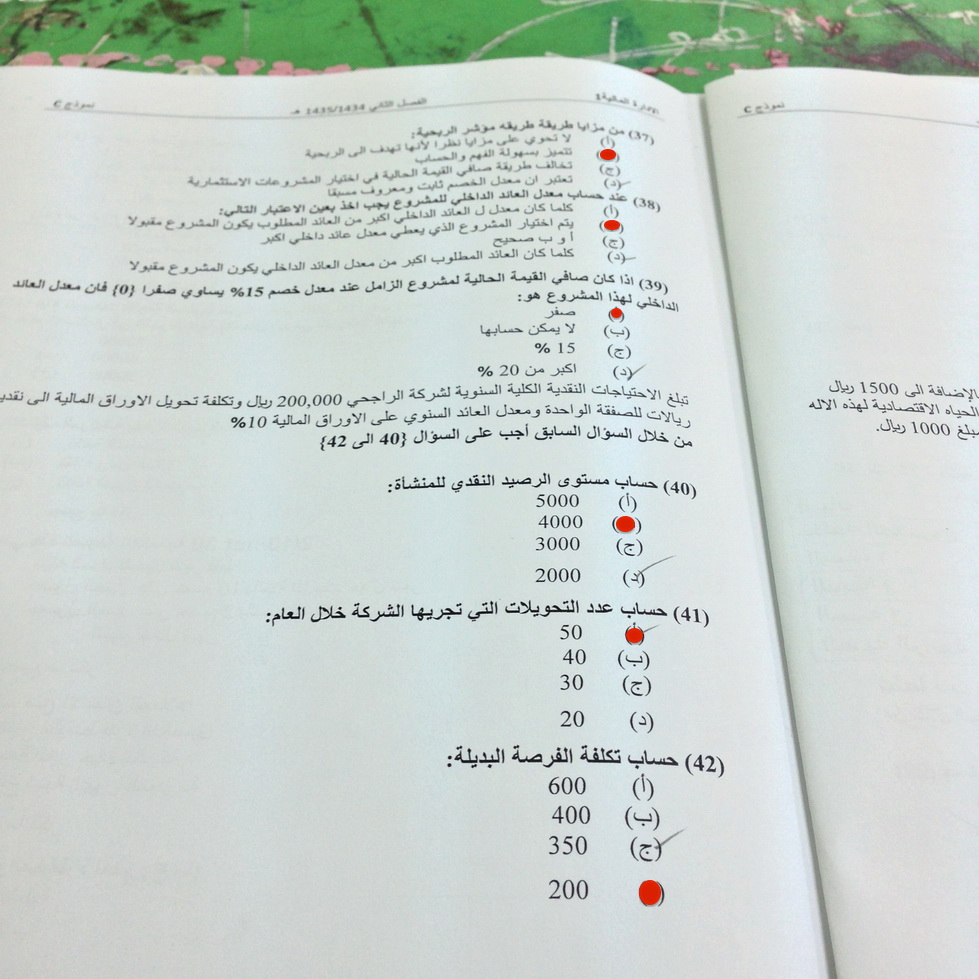 الإدارة المالية1 الفصل الثاني 1435/1434 هـ نموذج C
(37) من مزايا طريقة طريقه مؤشر الربحية:
(أ) لا تحوي على مزايا نظرا لأنها تهدف الى الربحية
تتميز بسهولة الفهم والحساب
(ج) تخالف طريقة صافي القيمة الحالية في اختيار المشروعات الاستثمارية
(د) تعتبر ان معدل الخصم ثابت ومعروف مسبقا
(38) عند حساب معدل العائد الداخلي للمشروع يجب اخذ بعين الاعتبار التالي:
(أ) كلما كان معدل ل العائد الداخلي اكبر من العائد المطلوب يكون المشروع مقبولا
يتم اختيار المشروع الذي يعطي معدل عائد داخلي اكبر
(ج) أ و ب صحيح
(د) كلما كان العائد المطلوب اكبر من معدل العائد الداخلي يكون المشروع مقبولا
(39) اذا كان صافي القيمة الحالية لمشروع الزامل عند معدل خصم 15% يساوي صفرا {0} فان معدل العائد
الداخلي لهذا المشروع هو:
صفر
(ب) لا يمكن حسابها
(ج) 15 %
(د) اكبر من 20 %
تبلغ الاحتياجات النقدية الكلية السنوية لشركة الراجحي 200,000 ريال وتكلفة تحويل الاوراق المالية الى
ريالات للصفقة الواحدة ومعدل العائد السنوي على الاوراق المالية 10%
من خلال السؤال السابق أجب على السؤال {40 الى 42}
(40) حساب مستوى الرصيد النقدي للمنشأة:
(أ) 5000
4000
(ج) 3000
(د) 2000
(41) حساب عدد التحويلات التي تجريها الشركة خلال العام:
50
(ب) 40
(ج) 30
(د) 20
(42) حساب تكلفة الفرصة البديلة:
(أ) 600
(ب) 400
(ج) 350
200
نموذج C
بالإضافة الى 1500 ريال
الحياه الاقتصادية لهذه الاله
بمبلغ 1000 ريال.